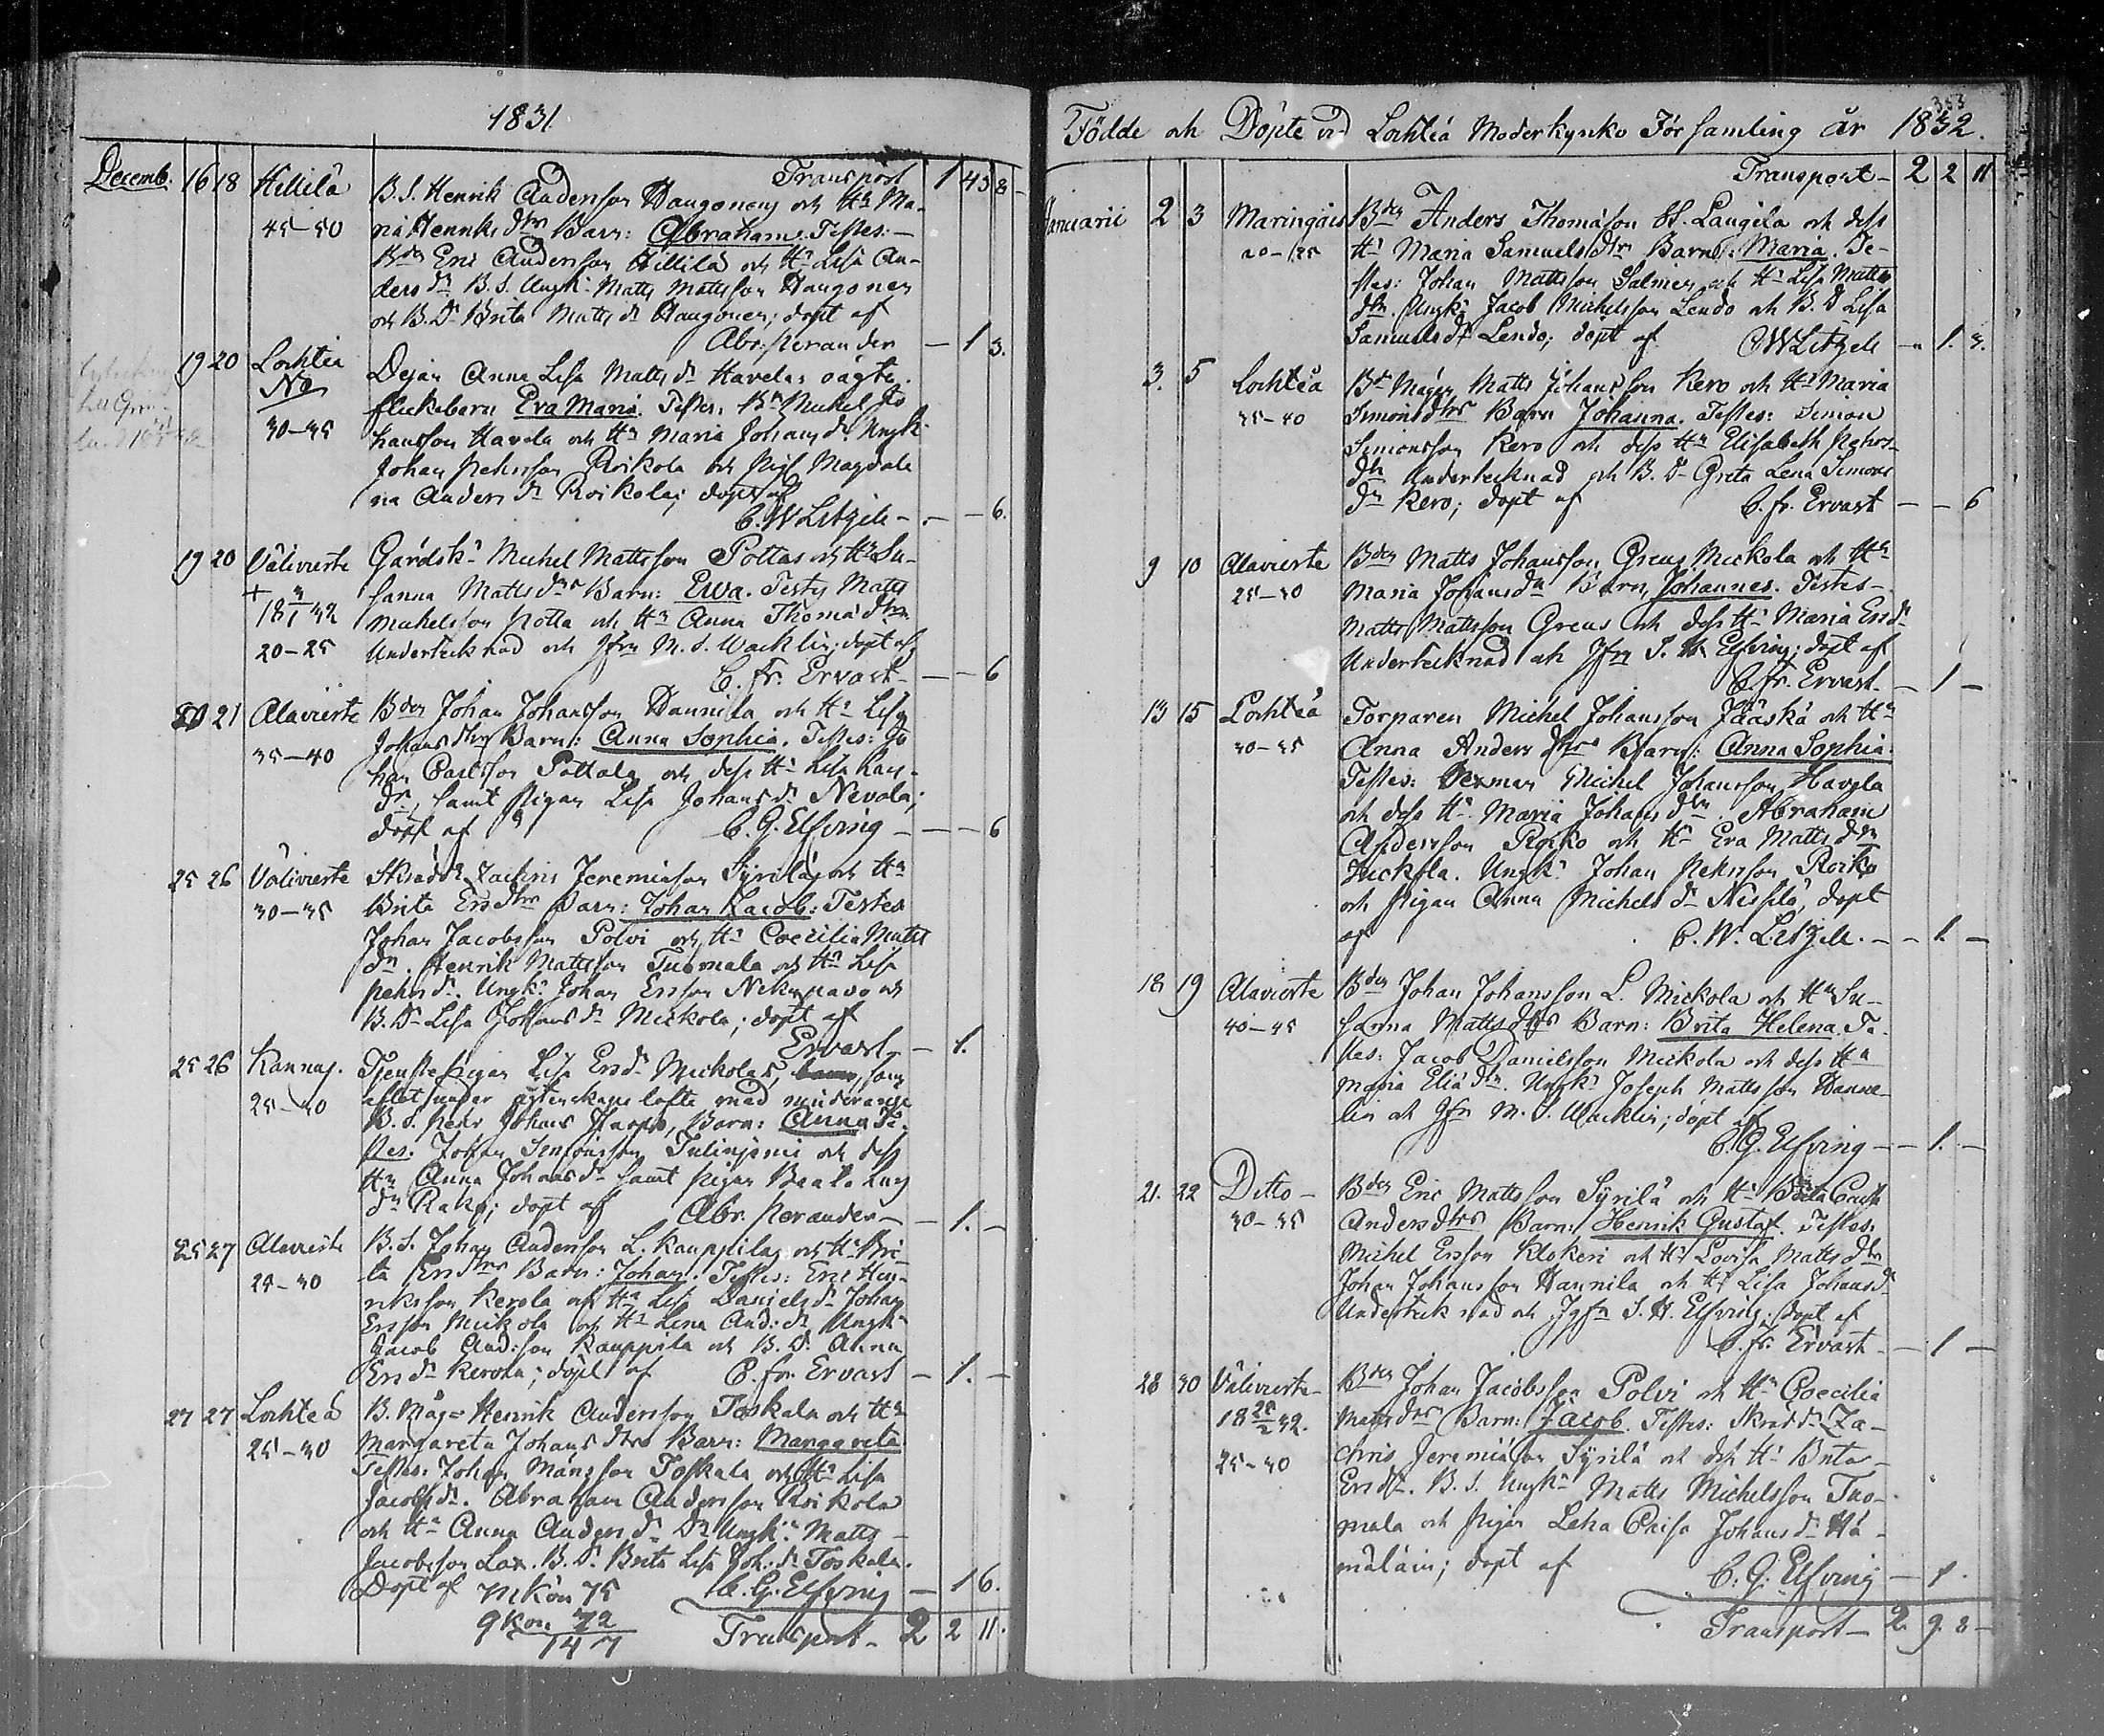 1831
Decemb. 16 18 Hillilä Transport 1 45 8
B. S. Henrik Andersson Haugonen och Hu Ma-
45-50 ria Henriks dtrs Barn: Abraham. Testes:
Bden Eric Andersson Hillilä och Hu Lisa An-
ders dr B. S. Ungk. Matts Mattsson Haugonen
och B. Dr Brita Matts dr Haugonen; döpt af
Abr. Perander — 1 3.
19 20 Lochteå Dejan Anna Lisa Matts dr Havelas oägta
No flickebarn Eva Maria. Testes: Bn Michel Jo
30-35 hansson Havela och Hu Maria Johans dr Ungk.
Johan Pehrsson Roikola och Pig. Magdale
na Anders dr Roikola; döpt af
C. W Litzell - — - 6.
19 20 Välivierte Gårdsk. Michel Mattsson Pottas och Hu Su-
+ sanna Matts dtrs Barn: Ewa. Testes Matts
18 32 Michelsson Potta och Hu Anna Thomæ dtr
20-25 Undertecknad och Jfru M. S. Wacklin; döpt af
C. Fr. Ervast — — 6
20 21 Alavierte Bden Johan Johansson Hannila och Hu Lisa
35-40 Johans dtrs Barn: Anna Sophia. Testes: Jo
han Carlsson Pottala och dess Hu Lisa
dr, samt Pigan Lisa Johans dr Nevola;
döpt af C. G. Elfving — — 6
25 26 Välivierte Skrädd. Zachris Jeremiæson Syrilä och Hu
30-35 Brita Ers dtrs Barn: Johan Jacob: Testes
Johan Jacobsson Polvi och Hu Coecilia Matts
dr. Henrik Mattsson Tuomala och Hu Lisa
Pehrs dr. Ungk. Johan Ersson Nikupavo och
B. Dr Lisa Johans dr Mickola; döpt af
Ervast — 1.
25 26 Kannus. Tjenstepigan Lisa Ers dr Mickolas, som
25-30 aflat under ägtenskaps löfte med
B. S. Pehr Johans Harju, Barn: Anna Te-
stes. Johan Simonsson Tulinjemi och dess
Hu Anna Johans dr samt Pigan Beata
dr Rako; döpt af Abr. Perander — 1. —
25 27 Alavierte B. S. Johan Andersson L. Kauppilas och Hu Bri
25-30 ta Ers dtrs Barn: Johan. Testes: Eric Hen-
riksson Kerola och Hu Lisa Daniels dr Johan
Ersson Mickola och Hu Lena And: dr Ungk.
Jacob And:son Kauppila och B. Dr Anna
Ers dr Kerola; döpt af C. Fr. Ervast — 1. —
27 27 Lochteå B. Måg Henrik Andersson Toskala och Hu
25-30 Margareta Johans dtrs Barn: Margareta
Testes: Johan Månsson Toskala och Hu Lisa
Jacobs dr. Abraham Andersson Roikola
och Hu Anna Anders dr Ungk. Matts
Jacobsson Lax. B. Dr Brita Lisa Joh: dr Toskala.
Döpt af C. G. Elfving — 1 6.
M Kön 75
Q Kön 72
147 Transport - 2 2 11.
353
Födde och Döpte vid Lochteå Moderkyrko Församling år 1832.
Transport - 2 2 11
Januarii 2 3 Maringais Bden Anders Thomæson St. Laugila och dess
20-25 Hu Maria Samuels dtrs Barn: Maria. Te-
stes: Johan Mattsson Salmen och Hu Lisa Matts
dtr. Ungk. Jacob Michelsson Lendo och B. D Lisa
Samuels dr Lendo; döpt af C W Litzell — 1. 3.
3. 5 Lochteå Bd Mågen Matts Johansson Kero och Hu Maria
35-40 Simons dtrs Barn Johanna. Testes: Simon
Simonsson Kero och dess Hu Elisabeth Pehrs-
dtr Undertecknad och B. Dr Greta Lena Simons
dr Kero; döpt af C. Fr. Ervast — — 6
9 10 Alavierte Bden Matts Johansson Greus Mickola och Hu
25-30 Maria Johans dr Barn, Johannes. Testes-
Matts Mattsson Greus och dess Hu Maria Ers dr
Undertecknad och Jfru S. H. Elfving; döpt af
C. Fr. Ervast. — 1 —
13 15 Lochteå Torparen Michel Johansson Jääskä och Hu
30-35 Anna Anders dtrs Barn: Anna Sophia.
Testes: Sexman Michel Johansson Havela
och dess Hu Maria Johans dtr. Abraham
Andersson Roiko och Hu Eva Matts dtr
Juckola. Ungk. Johan Pehrsson Roiko
och Pigan Anna Michels dr Nissilä, döpt
af C. W. Litzell. — 1. —
18 19 Alavierte Bden Johan Johansson L. Mickola och Hu Su-
40-45 sanna Matts dtrs Barn: Brita Helena. Te-
stes: Jacob Danielsson Mickola och dess Hu
Maria Eliæ dtr. Ungk. Joseph Mattsson Hanne-
lin och Jfr M. S. Wacklin; döpt af
C. G. Elfving — 1. —
21. 22 Ditto - Bden Eric Mattsson Syrilä och Hu Brita Cajsa
30-35 Anders dtrs Barn: Henrik Gustaf. Testes:
Michel Ersson Klokeri och Hu Lovisa Matts dtr
Johan Johansson Hannila och Hu Lisa Johans dr
Undertecknad och Jgfr S. H. Elfving; döpt af
C. Fr. Ervast — 1 —
28 30 Välivierte Bden Johan Jacobsson Polvi och Hu Coecilia
18 25/2 32. Matts dtrs Barn: Jacob. Testes: Skrädd. Za-
25-30 chris Jeremiæson Syrilä och dess Hu Brita
Ers dr. B. S. Ungk. Matts Michelsson Tuo-
mala och Pigan Lena Caisa Johans dr Hä-
mäläin; döpt af C. G. Elfving — 1.
Transport — 2. 9. 8 —